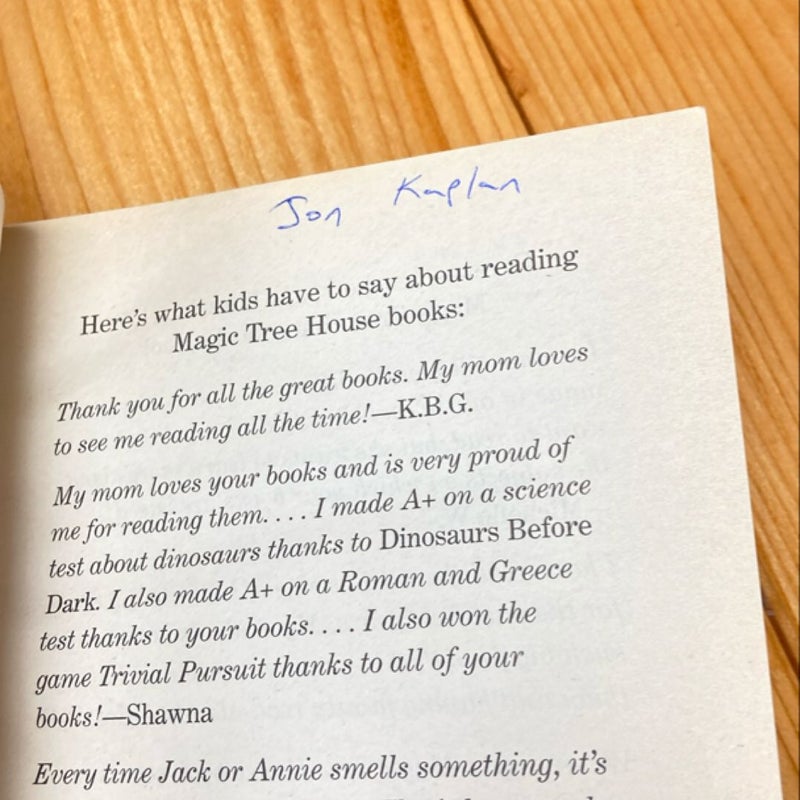 Jon Kaplan
Here's what kids have to say about reading
Magic Tree House books:
Thank you for all the great books. My mom loves
to see me reading all the time!—K.B.G.
My mom loves your books and is very proud of
me for reading them. . . . I made A+ on a science
test about dinosaurs thanks to Dinosaurs Before
Dark. I also made A+ on a Roman and Greece
test thanks to your books. . . . I also won the
game Trivial Pursuit thanks to all of your
books!—Shawna
Every time Jack or Annie smells something, it's